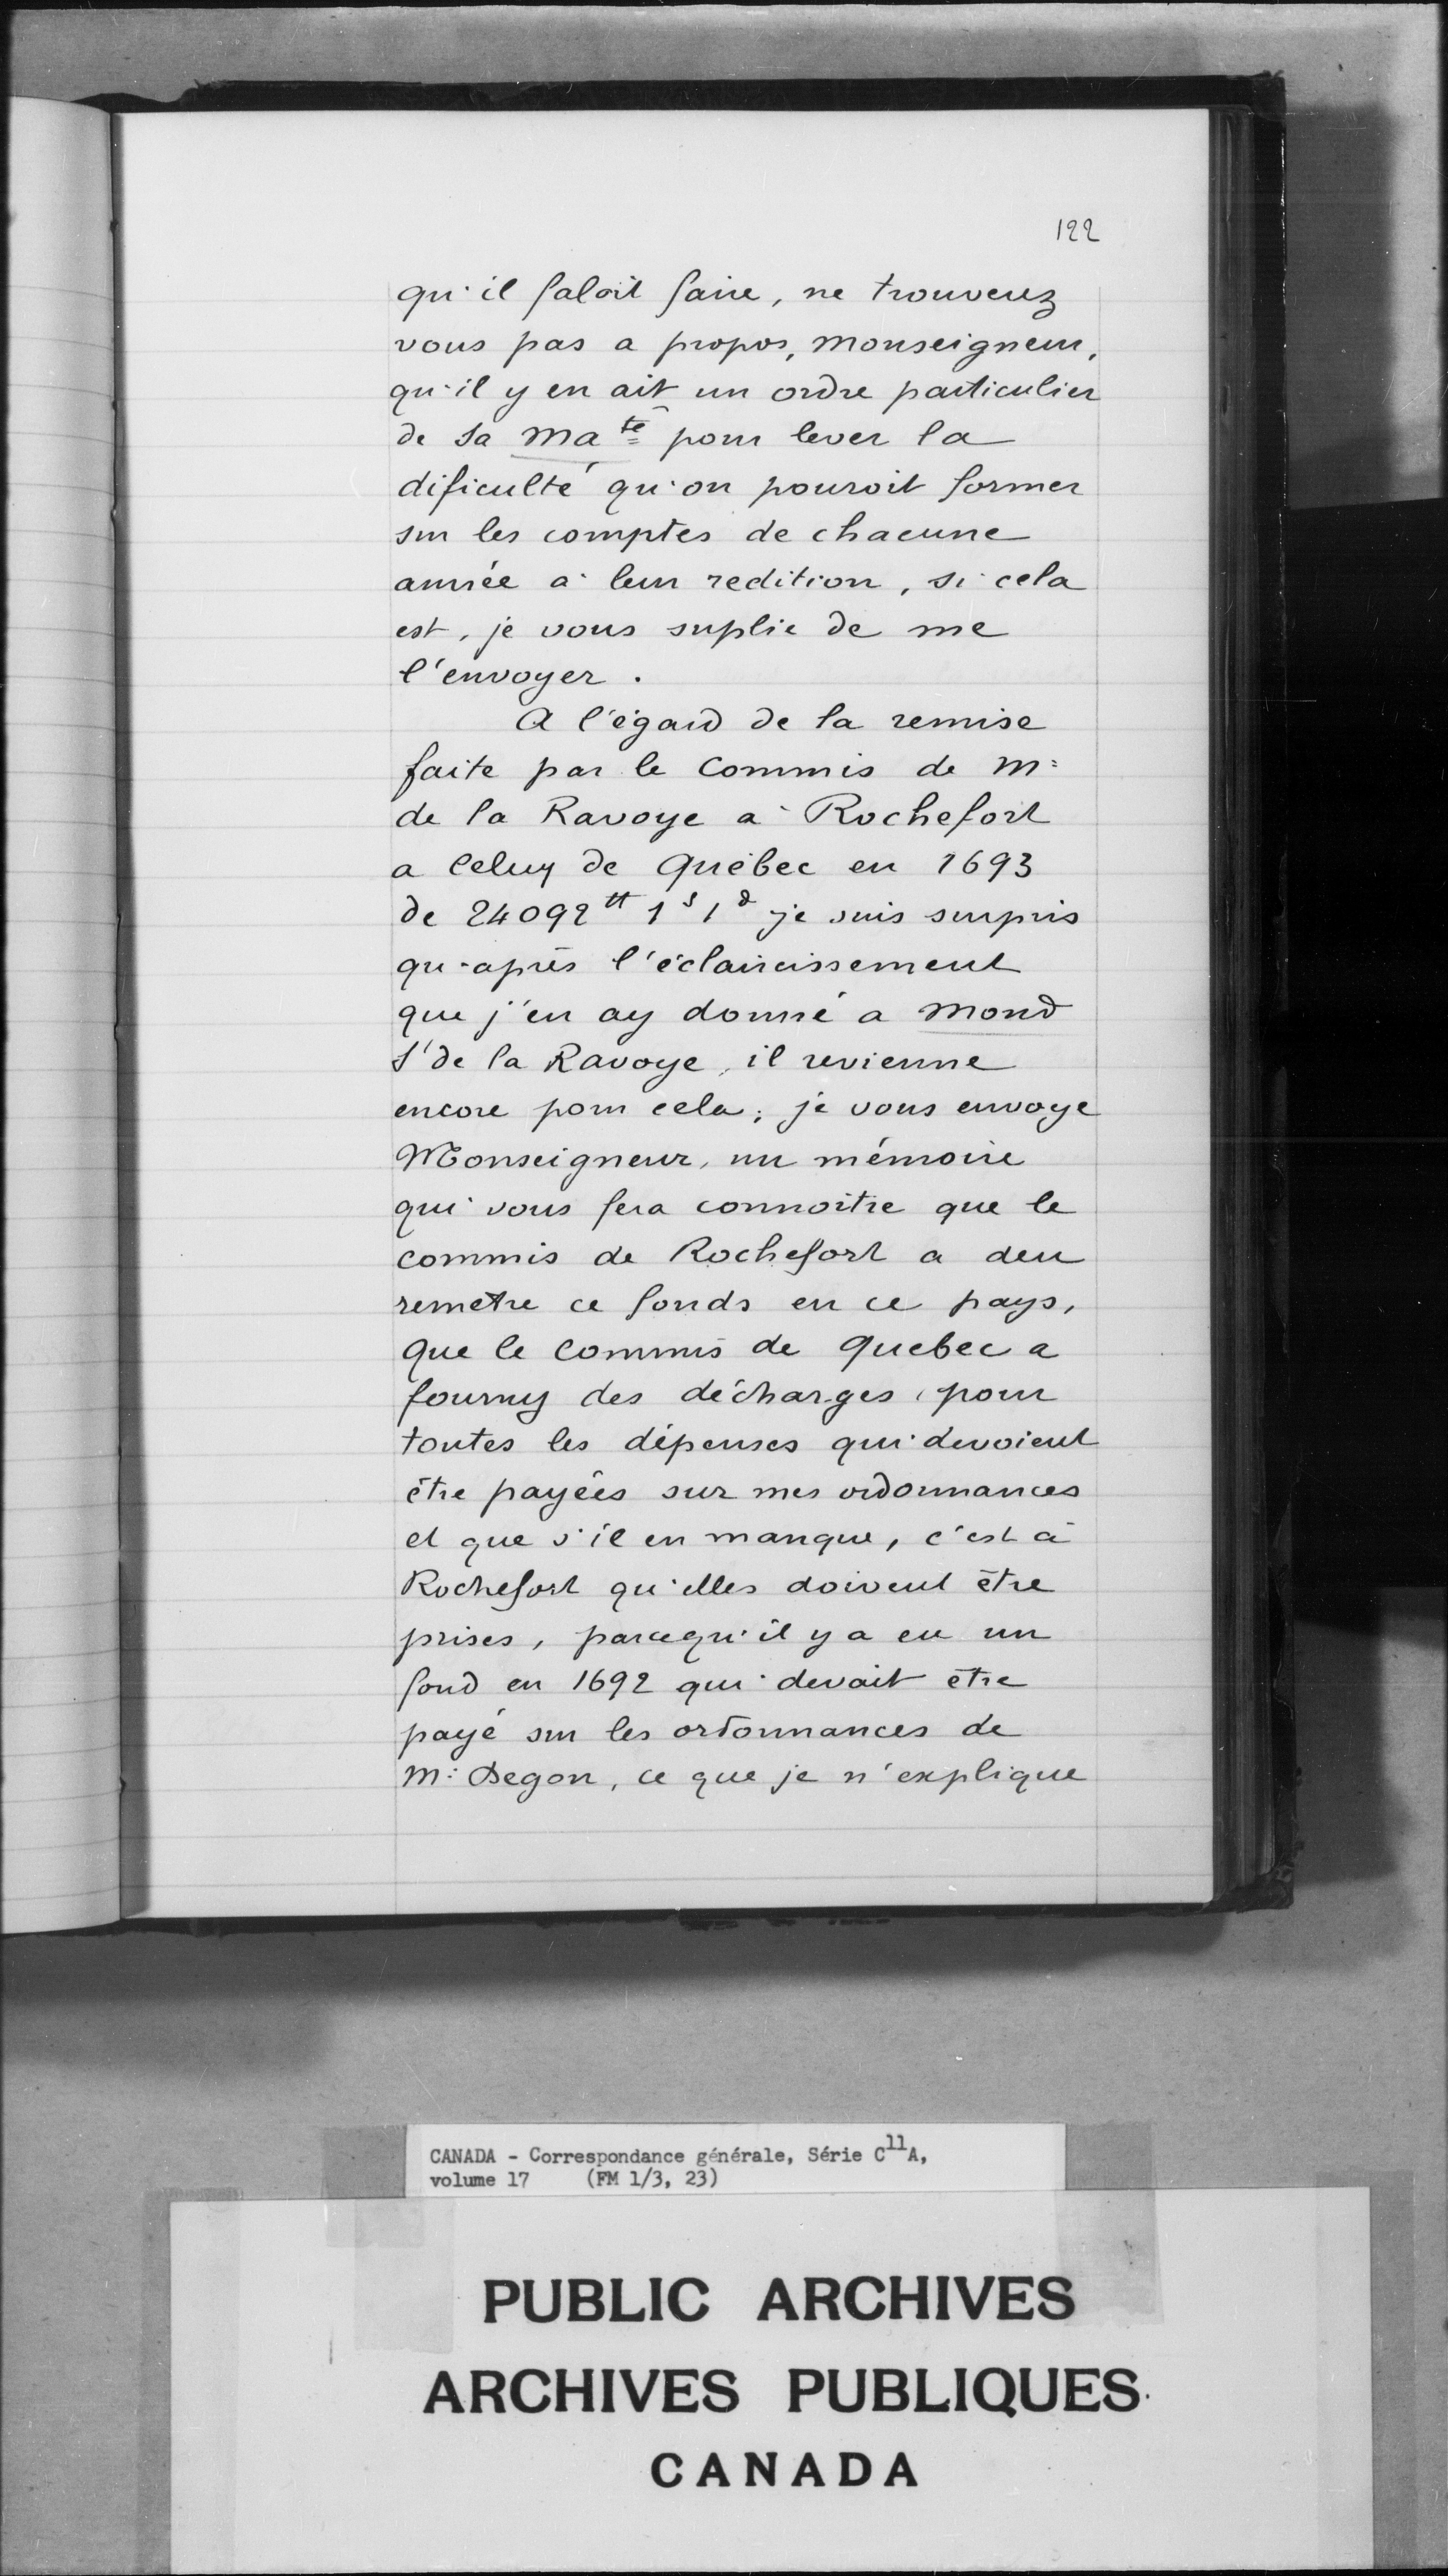 122
qu'il faloit faire, ne trouverez
vous pas a propos, Monseigneur,
qu'il y en ait un ordre particulier
de Sa Ma té pour lever la
dificulté qu'on pouroit former
sur les comptes de chacune
année à leur redition, si cela
est, je vous suplie de me
l'envoyer.
A l'égard de la remise
faite par le Commis de M:
de la Ravoye à Rochefort
a Celuy de Québec en 1693
de 24092 tt 1 s 1 d je suis surpris
qu'après l'éclaircissement
que j'en ay donné a Mond
S' de la Ravoye, il revienne
encore pour cela; je vous envoye
Monseigneur, un mémoire
qui vous fera connoitre que le
commis de Rochefort a deu
remetre ce fonds en ce pays,
que le Commis de Quebec a
fourny des décharges, pour
toutes les dépenses qui devoient
être payées sur mes ordonnances
et que s'il en manque, c'est à
Rochefort qu'elles doivent être
prises, parcequ'il y a eu un
fond en 1692 qui devait être
payé sur les ordonnances de
M: Begon, ce que je n'explique
CANADA - Correspondance générale, Série C11A,
volume 17 (FM 1/3, 23)
PUBLIC ARCHIVES
ARCHIVES PUBLIQUES
CANADA